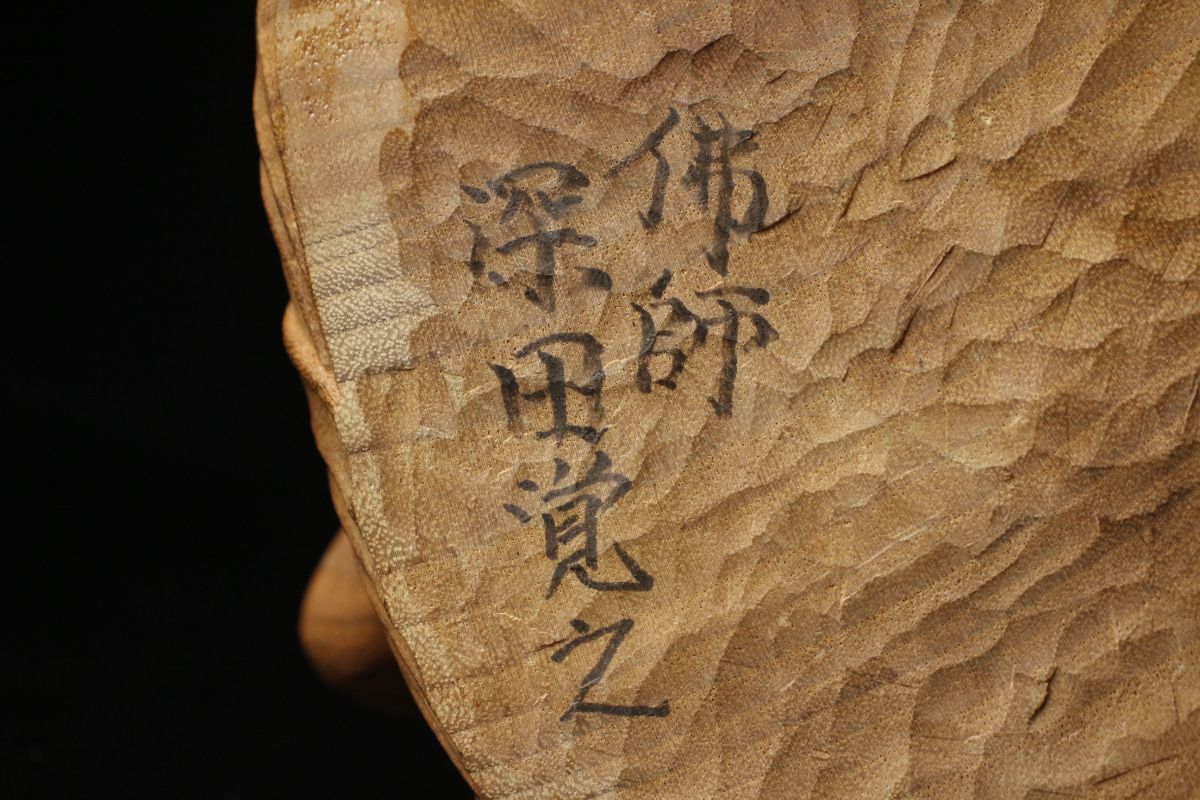 佛師
深田覚之